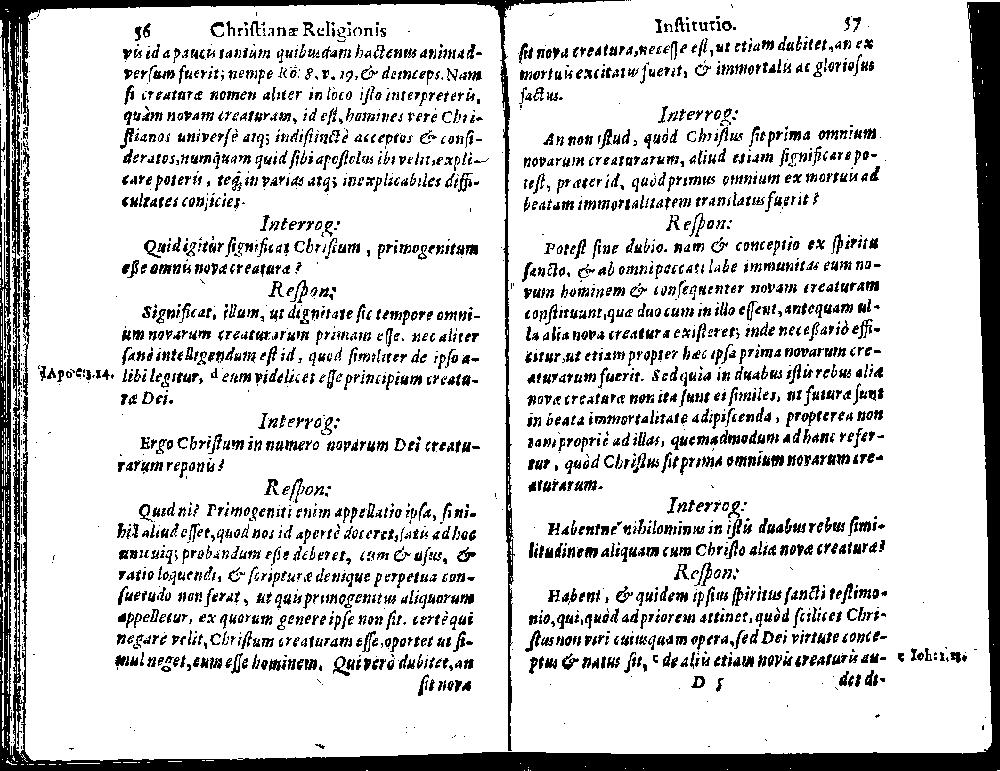 56 Christianæ Religionis
vis id a paucis tantùm quibusdam hactenus animad-
versum fuerit; nempe Rō: 8. v. 19, & deinceps. Nam
si creaturæ nomen aliter in loco isto interpreteris,
quàm novam creaturam, id est, homines verè Chri-
stianos universè atq; indistinctè acceptos & consi-
deratos, numquam quid sibi apostolus ibi velit, expli-
care poteris, teq; in varias atq; inexplicabiles diffi-
cultates conjicies.
Interrog:
Quid igitur significat Christum, primogenitum
esse omnis novæ creaturæ?
Respon:
Significat, illum, ut dignitate sic tempore omni-
um novarum creaturarum primam esse. nec aliter
sanè intellegendum est id, quod similiter de ipso a-
d Apoc. 3. 14. libi legitur, d eum videlicet esse principium creatu-
ræ Dei.
Interrog:
Ergo Christum in numero novarum Dei creatu-
rarum reponis?
Respon:
Quid ni? Primogeniti enim appellatio ipsa, si ni-
hil aliud esset, quod nos id apertè doceret, satis ad hoc
unicuiq; probandum esse deberet, cum & usus, &
ratio loquendi, & scripturæ denique perpetua con-
suetudo non ferat, ut quis primogenitus aliquorum
appelletur, ex quorum genere ipse non sit. certè qui
negare velit, Christum creaturam esse, oportet ut si-
mul neget, eum esse hominem. Qui verò dubitet, an
sit nova
Institutio. 57
sit nova creatura, necesse est, ut etiam dubitet, an ex
mortuis excitatus fuerit, & immortalis ac gloriosus
factus.
Interrog:
An non istud, quòd Christus sit prima omnium
novarum creaturarum, aliud etiam significare po-
test, præter id, quòd primus omnium ex mortuis ad
beatam immortalitatem translatus fuerit?
Respon:
Potest sine dubio. nam & conceptio ex spiritu
sancto, & ab omni peccati labe immunitas eum no-
vum hominem & consequenter novam creaturam
constituunt, quæ duo cum in illo essent, antequam ul-
la alia nova creatura existeret; inde necessariò effi-
citur, ut etiam propter hæc ipsa prima novarum cre-
aturarum fuerit. Sed quia in duabus istis rebus aliæ
novæ creaturæ non ita sunt ei similes, ut futuræ sunt
in beata immortalitate adipiscenda, propterea non
tam propriè ad illas, quemadmodum ad hanc refer-
tur, quòd Christus sit prima omnium novarum cre-
aturarum.
Interrog:
Habentne nihilominus in istis duabus rebus simi-
litudinem aliquam cum Christo aliæ novæ creaturæ?
Respon:
Habent, & quidem ipsius spiritus sancti testimo-
nio, qui, quòd ad priorem attinet, quòd scilicet Chri-
stus non viri cuiusquam opera, sed Dei virtute conce-
ptus & natus sit, e de aliis etiam novis creaturis au- e Ioh: 1. 13.
D 5 det di-